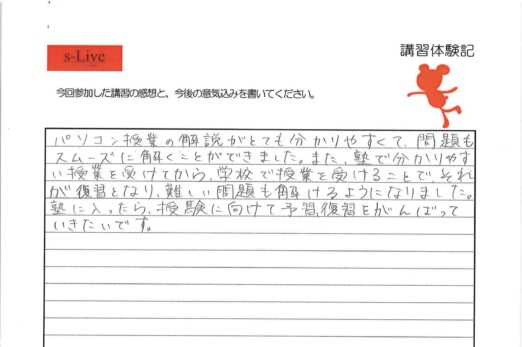 s-Live
講習体験記
今回参加した講習の感想と、今後の意気込みを書いてください。
パソコン授業の解説がとても分かりやすくて、問題も
スムーズに解くことができました。また、塾で分かりやす
い授業を受けてから、学校で授業を受けることで、それ
が復習となり、難しい問題も解けるようになりました。
塾に入ったら、授験に向けて予習、復習をがんばって
いきたいです。